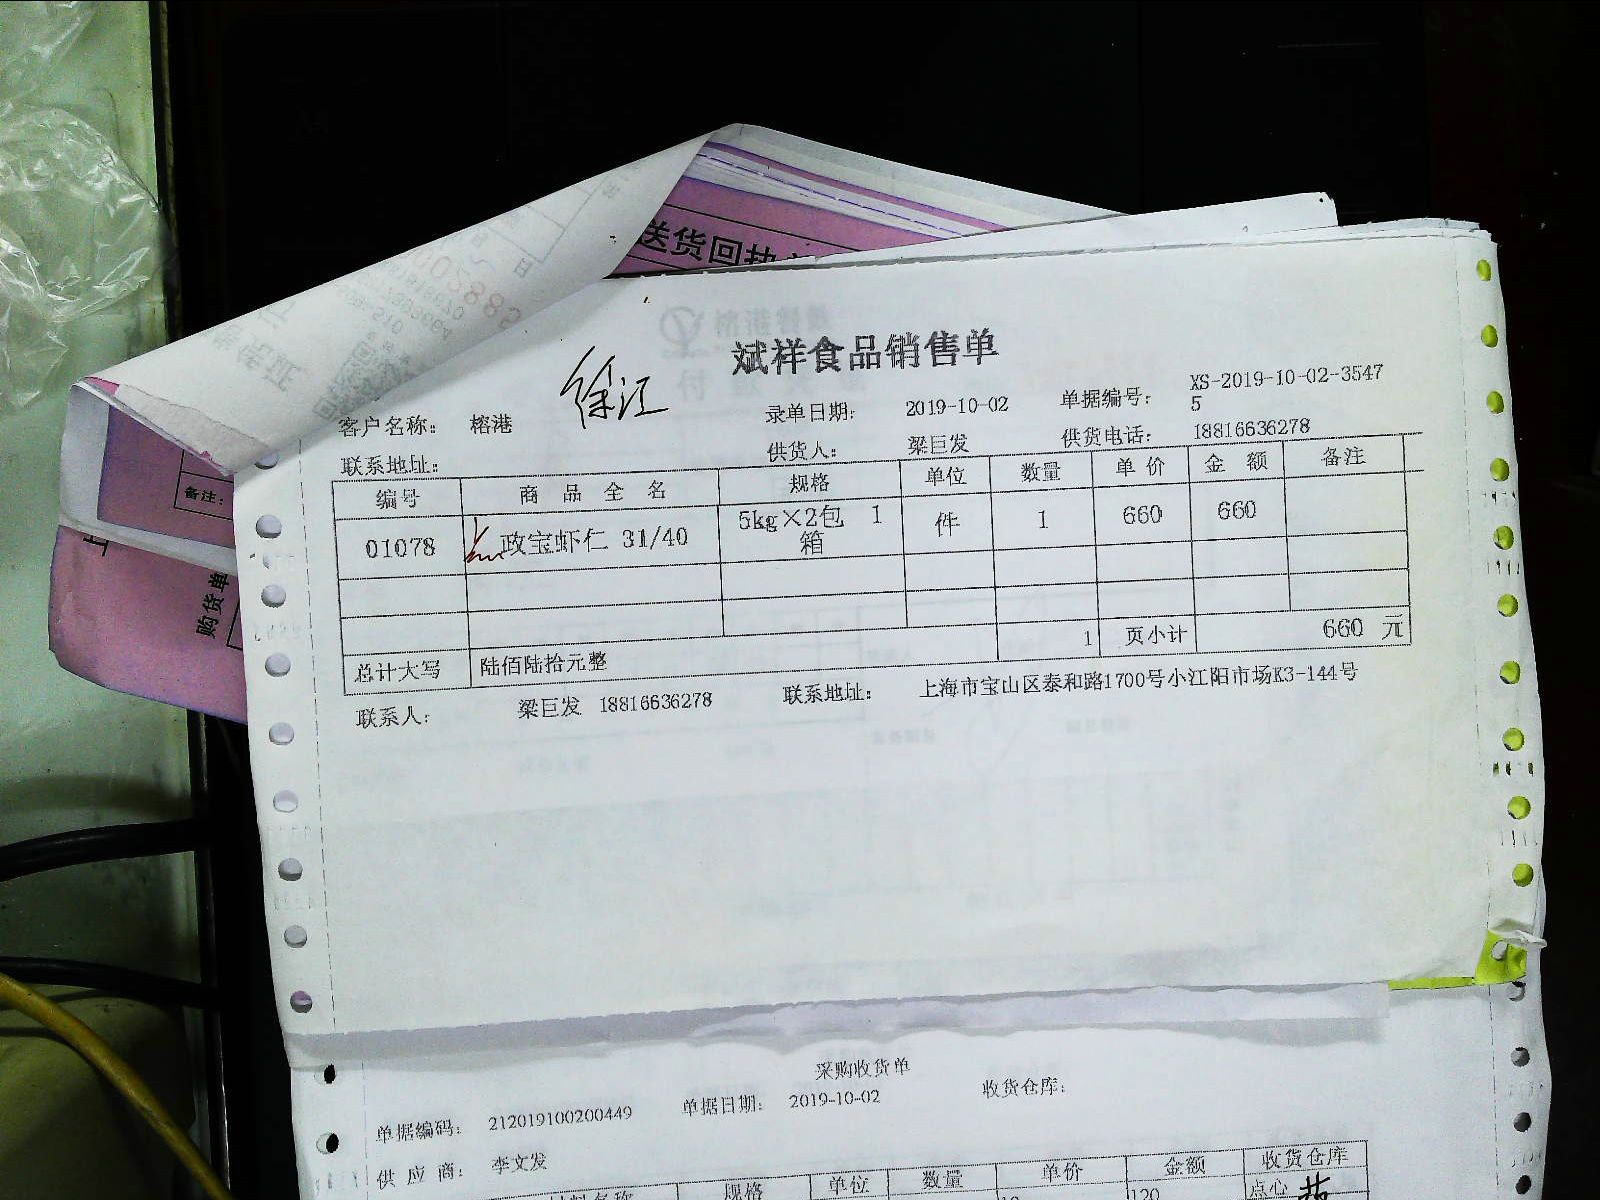 送货回执
斌祥食品销售单
徐汇
客户名称： 榕港 录单日期： 2019-10-02 单据编号： XS-2019-10-02-3547
5
联系地址： 供货人： 梁巨发 供货电话： 18816636278
编号 商 品 全 名 规格 单位 数量 单 价 金 额 备注
01078 政宝虾仁 31/40 5kg×2包 1 件 1 660 660
箱
1 页小计 660 元
总计大写 陆佰陆拾元整
联系人： 梁巨发 18816636278 联系地址： 上海市宝山区泰和路1700号小江阳市场K3-144号
备注：
购货单
采购收货单
单据编码： 212019100200449 单据日期： 2019-10-02 收货仓库：
供 应 商： 李文发
材料名称 规格 单位 数量 单价 金额 收货仓库
10 120 点心